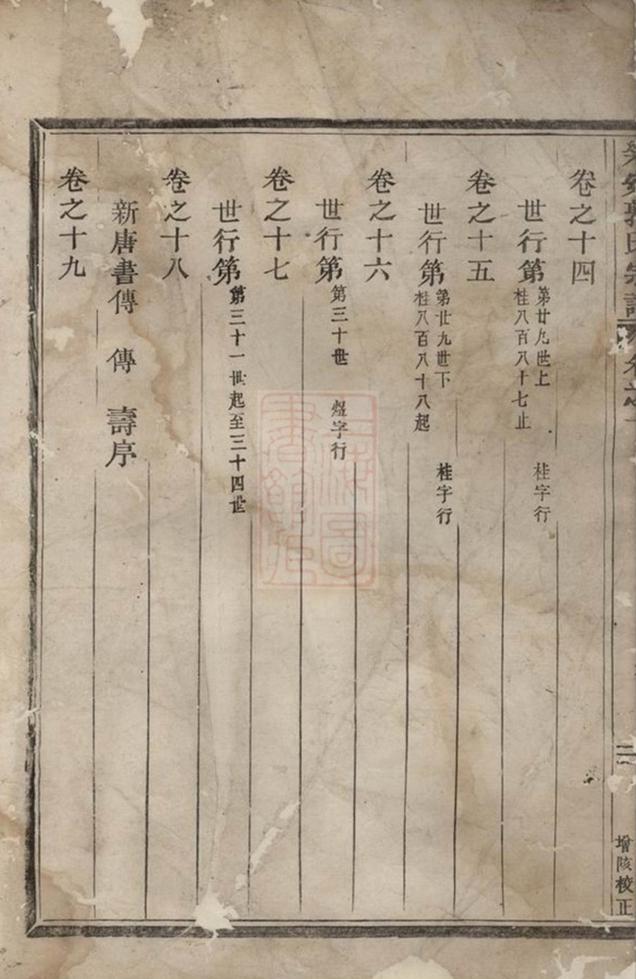 郭氏宗譜
增陔校正
卷之十四
世行第 第廿九世上 桂字行
桂八百八十七止
卷之十五
世行第 第廿九世下 桂字行
桂八百八十八起
卷之十六
世行第 第三十世 煜字行
卷之十七
世行第 第三十一世起至三十四世
卷之十八
新唐書傳 傳 壽序
卷之十九